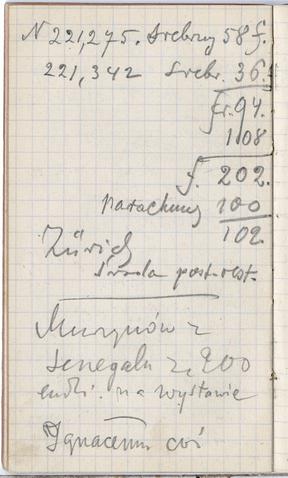 N 221,275. srebrny 58 f.
221,342 srebr. 36.
fr. 94.
108
f. 202.
rachuny 100
102.
Zürich
środa post. rest.
Murzynów z
Senegalu z 200
na wystawie
Ignacemu coś